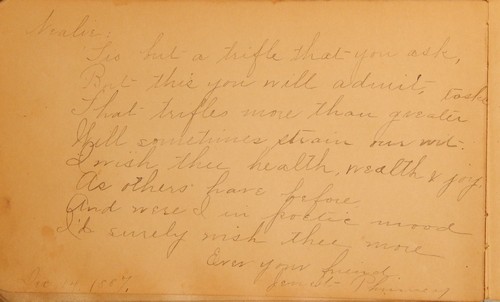 'Tis but a trifle that you ask,
But this you will admit,
That trifles more than greater tasks
Will sometimes strain our wit.
I wish thee health, wealth & joy
As others have before,
And were I in poetic mood
I'd surely wish thee more
Ever your friend